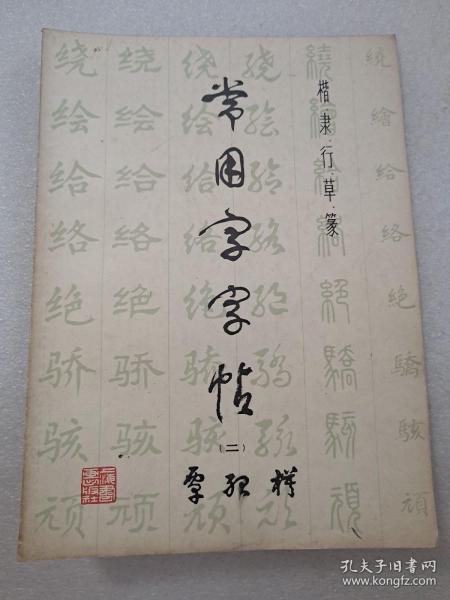 楷·隶·行·草·篆
常用字字帖
（二）
绕 绕 绕 绕 繞 繞
绘 绘 绘 绘 繪 繪
给 给 给 给 給 給
络 络 络 络 絡 絡
绝 绝 绝 绝 絕 絶
骄 骄 骄 骄 驕 驕
骇 骇 骇 骇 駭 駭
顽 顽 顽 顽 頑 頑
上海书画出版社
孔夫子旧书网
www.kongfz.com